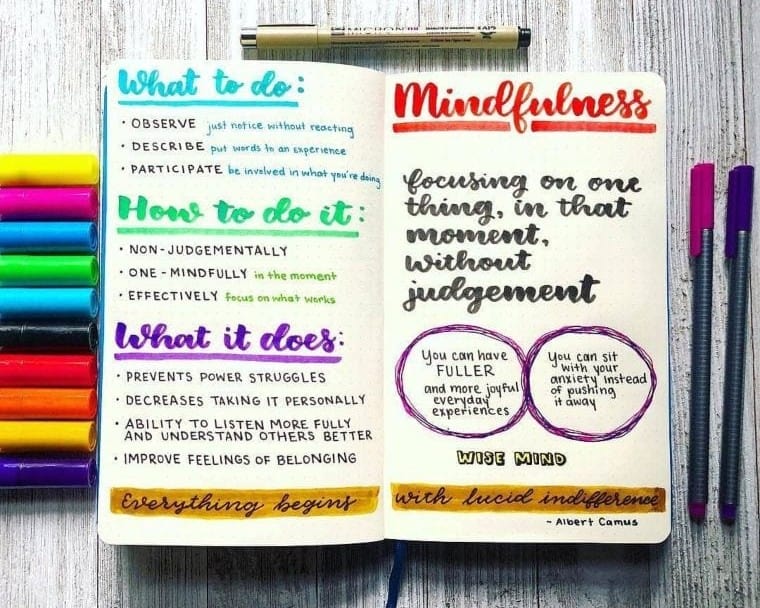 MICRON
What to do:
• OBSERVE just notice without reacting
• DESCRIBE put words to an experience
• PARTICIPATE be involved in what you're doing
How to do it:
• NON-JUDGEMENTALLY
• ONE-MINDFULLY in the moment
• EFFECTIVELY focus on what works
What it does:
• PREVENTS POWER STRUGGLES
• DECREASES TAKING IT PERSONALLY
• ABILITY TO LISTEN MORE FULLY
AND UNDERSTAND OTHERS BETTER
• IMPROVE FEELINGS OF BELONGING
Everything begins
Mindfulness
focusing on one
thing, in that
moment,
without
judgement
You can have
FULLER
and more joyful
everyday
experiences
You can sit
with your
anxiety instead
of pushing
it away
WISE MIND
with lucid indifference
~ Albert Camus